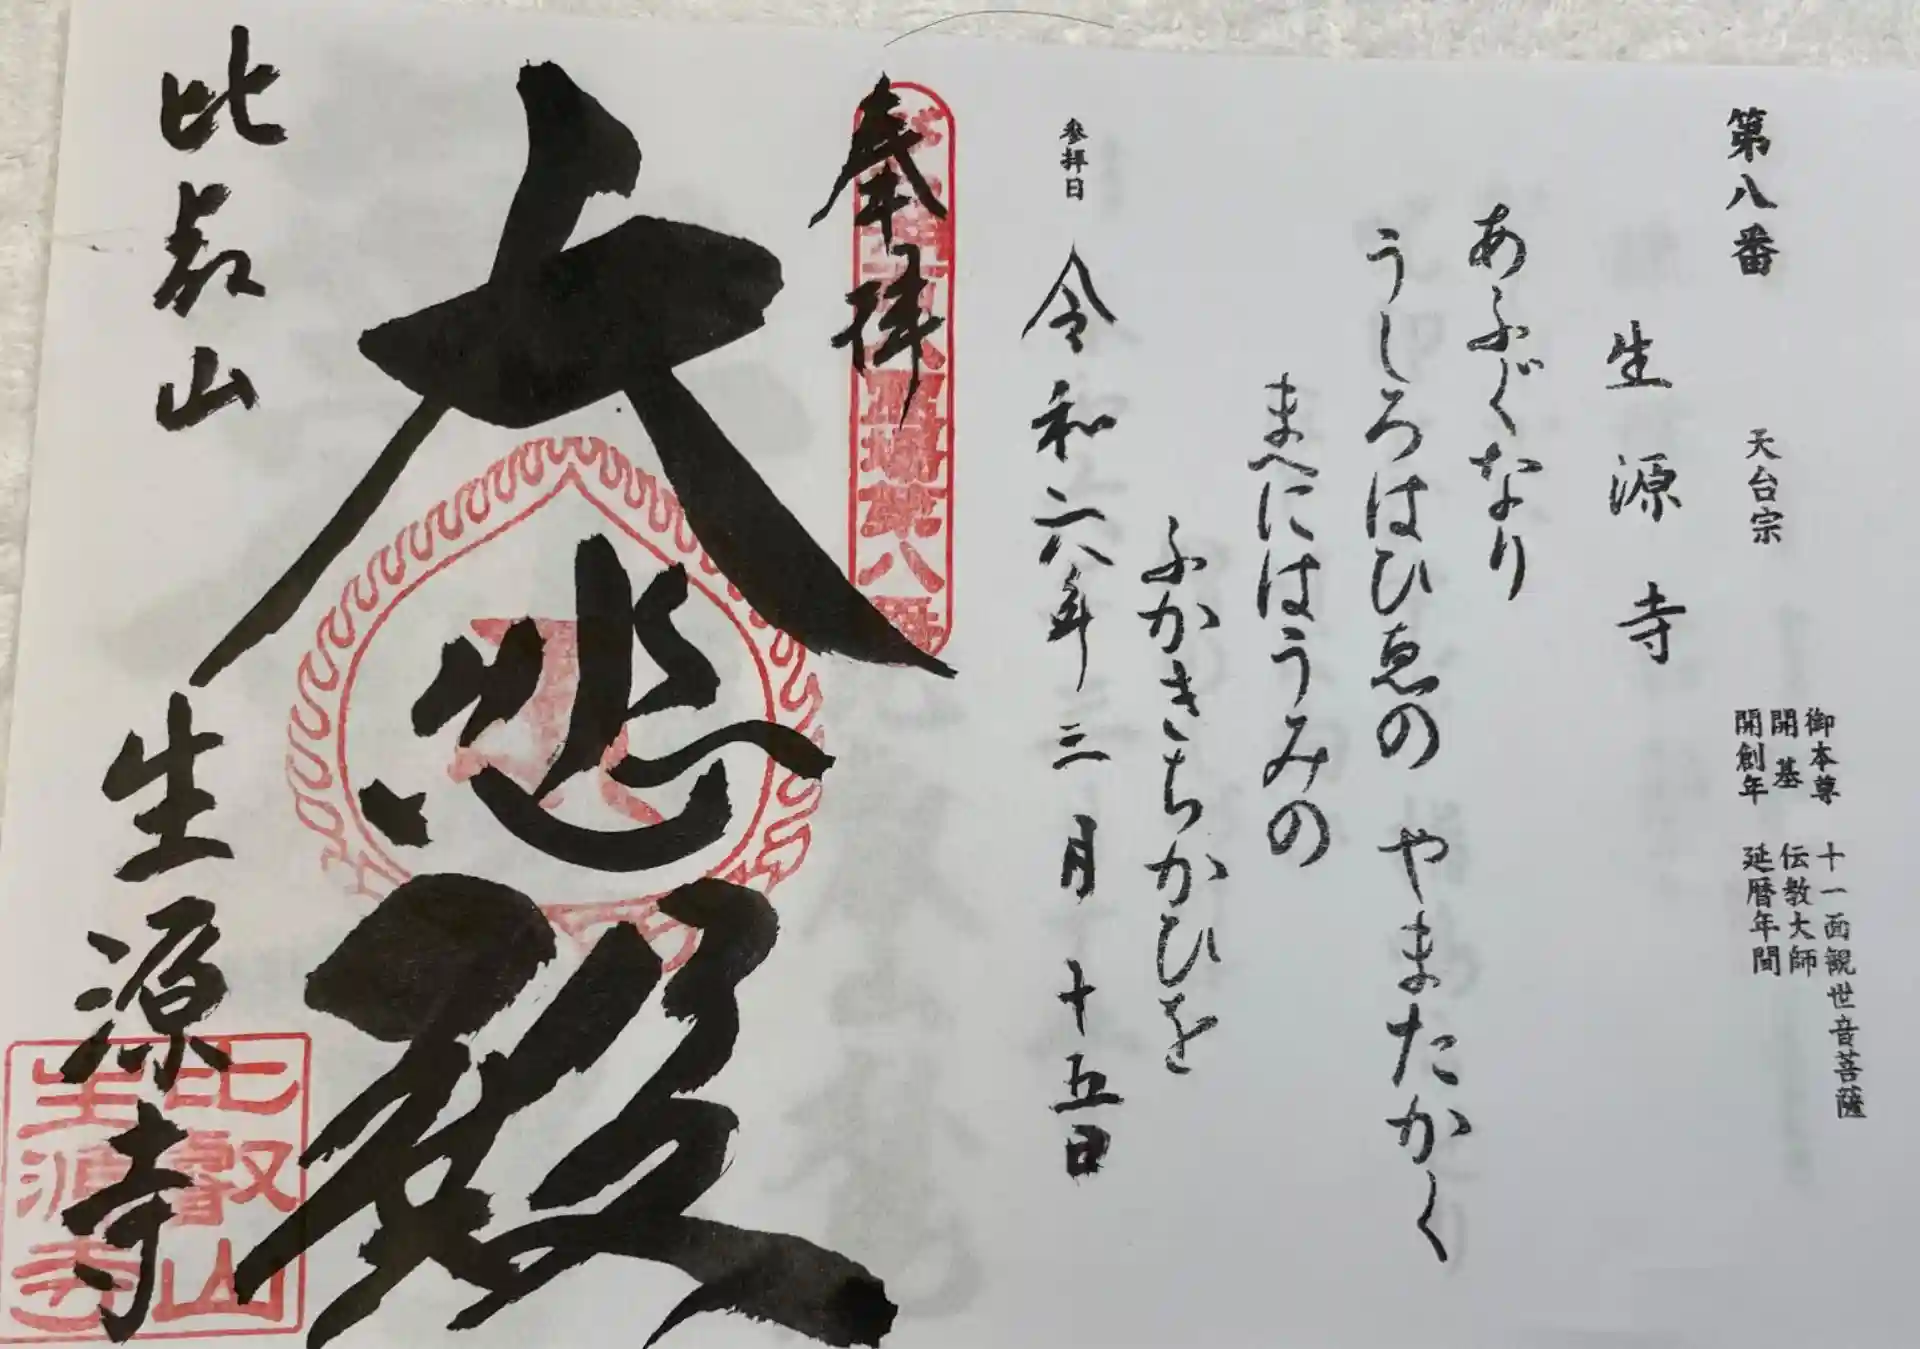 第八番
天台宗
御本尊 十一面観世音菩薩
開基 伝教大師
開創年 延暦年間
生源寺
あふぐなり
うしろはひゑの やまたかく
まへにはうみの
ふかきちかひを
参拝日 令和六年三月十五日
奉拝
霊場第八番
大悲殿
比叡山
生源寺
比叡山
生源寺